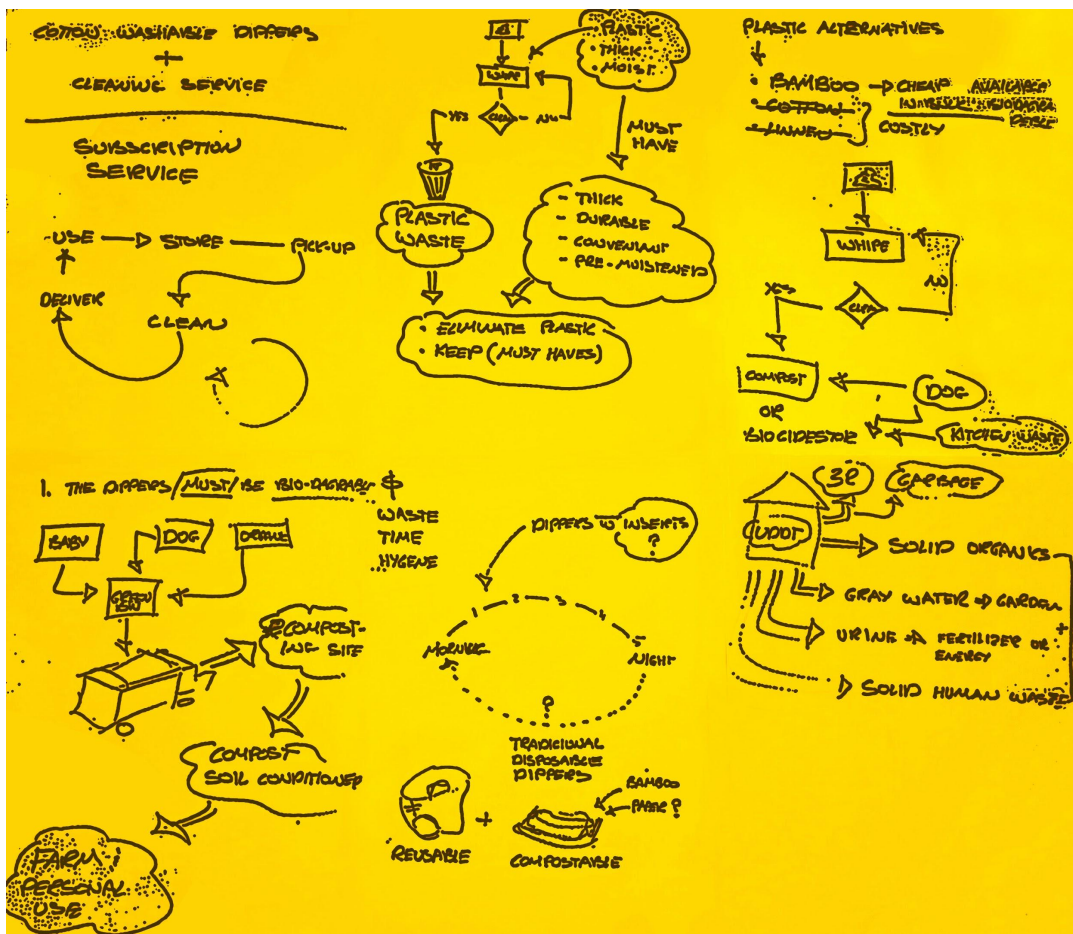 COTTON WASHABLE DIPPERS
+
CLEANING SERVICE
SUBSCRIPTION
SERVICE
USE
STORE
PICK-UP
CLEAN
DELIVER
PLASTIC
• THICK
• MOIST
WHIPE
CLEAN
YES
NO
MUST
HAVE
PLASTIC
WASTE
- THICK
- DURABLE
- CONVENIANT
- PRE-MOISTENED
• ELIMINATE PLASTIC
• KEEP (MUST HAVES)
PLASTIC ALTERNATIVES
• BAMBOO
CHEAP
AVAILABLE
• COTTON
• LINNEN
COSTLY
WHIPE
NO
YES
CLEAN
COMPOST
OR
BIOGIDESTOR
DOG
KITCHEN WASTE
1. THE DIPPERS /MUST/ BE BIO-DAGRABLE &
WASTE
TIME
HYGENE
BABY
DOG
GREEN
BIN
COMPOST-
ING SITE
COMPOST
SOIL CONDITIONER
FARM /
PERSONAL
USE
DIPPERS W INSERTS
?
1 2 3 4 5
MORNING
NIGHT
?
TRADICIONAL
DISPOSABLE
DIPPERS
REUSABLE
+
COMPOSTABLE
BAMBOO
PAPER ?
3R
GARBAGE
SOLID ORGANICS
GRAY WATER ⇒ GARDEN
+
URINE ⇒ FERTILIZER OR
ENERGY
SOLID HUMAN WASTE